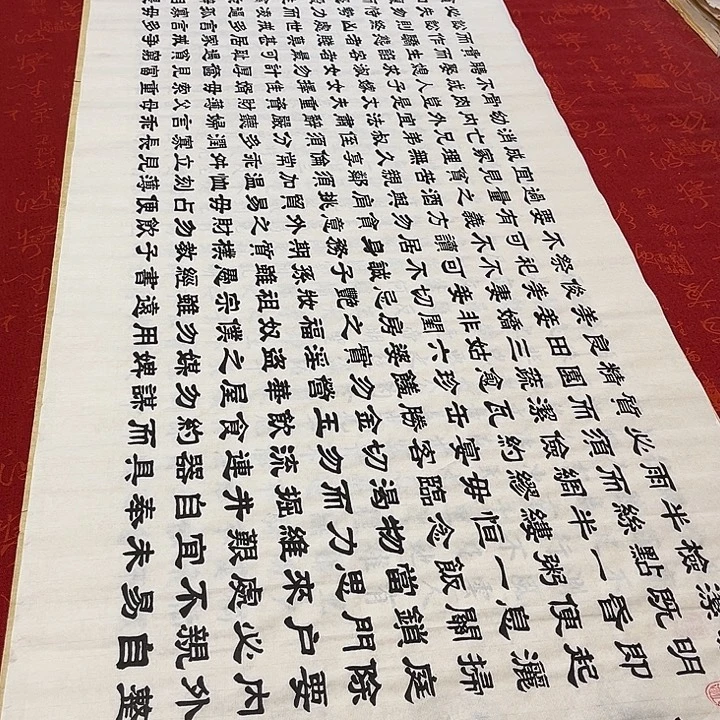 明即起灑掃庭除要內外整
潔既昏便息關鎖門户必親自
檢點一粥一飯當思來處不易
半絲半縷恒念物力維艱宜未
雨而綢繆毋臨渴而掘井自奉
必須儉約宴客切勿流連器具
質而潔瓦缶勝金玉飲食約而
精園蔬愈珍饈勿營華屋勿謀
良田三姑六婆實淫盜之媒婢
美妾嬌非閨房之福奴僕勿用
俊美妻妾切忌艷妝祖宗雖遠
祭祀不可不誠子孫雖愚經書
不可不讀居身務期質樸教子
要有義方勿貪意外之財勿飲
過量之酒與肩挑貿易毋占便
宜見貧苦親鄰須加溫恤刻薄
成家理無久享倫常乖舛立見
消亡兄弟叔侄須分多潤寡長
幼內外宜法肅辭嚴聽婦言乖
骨肉豈是丈夫重資財薄父母
不成人子嫁女擇佳婿毋索重
聘娶媳求淑女勿計厚奩見富